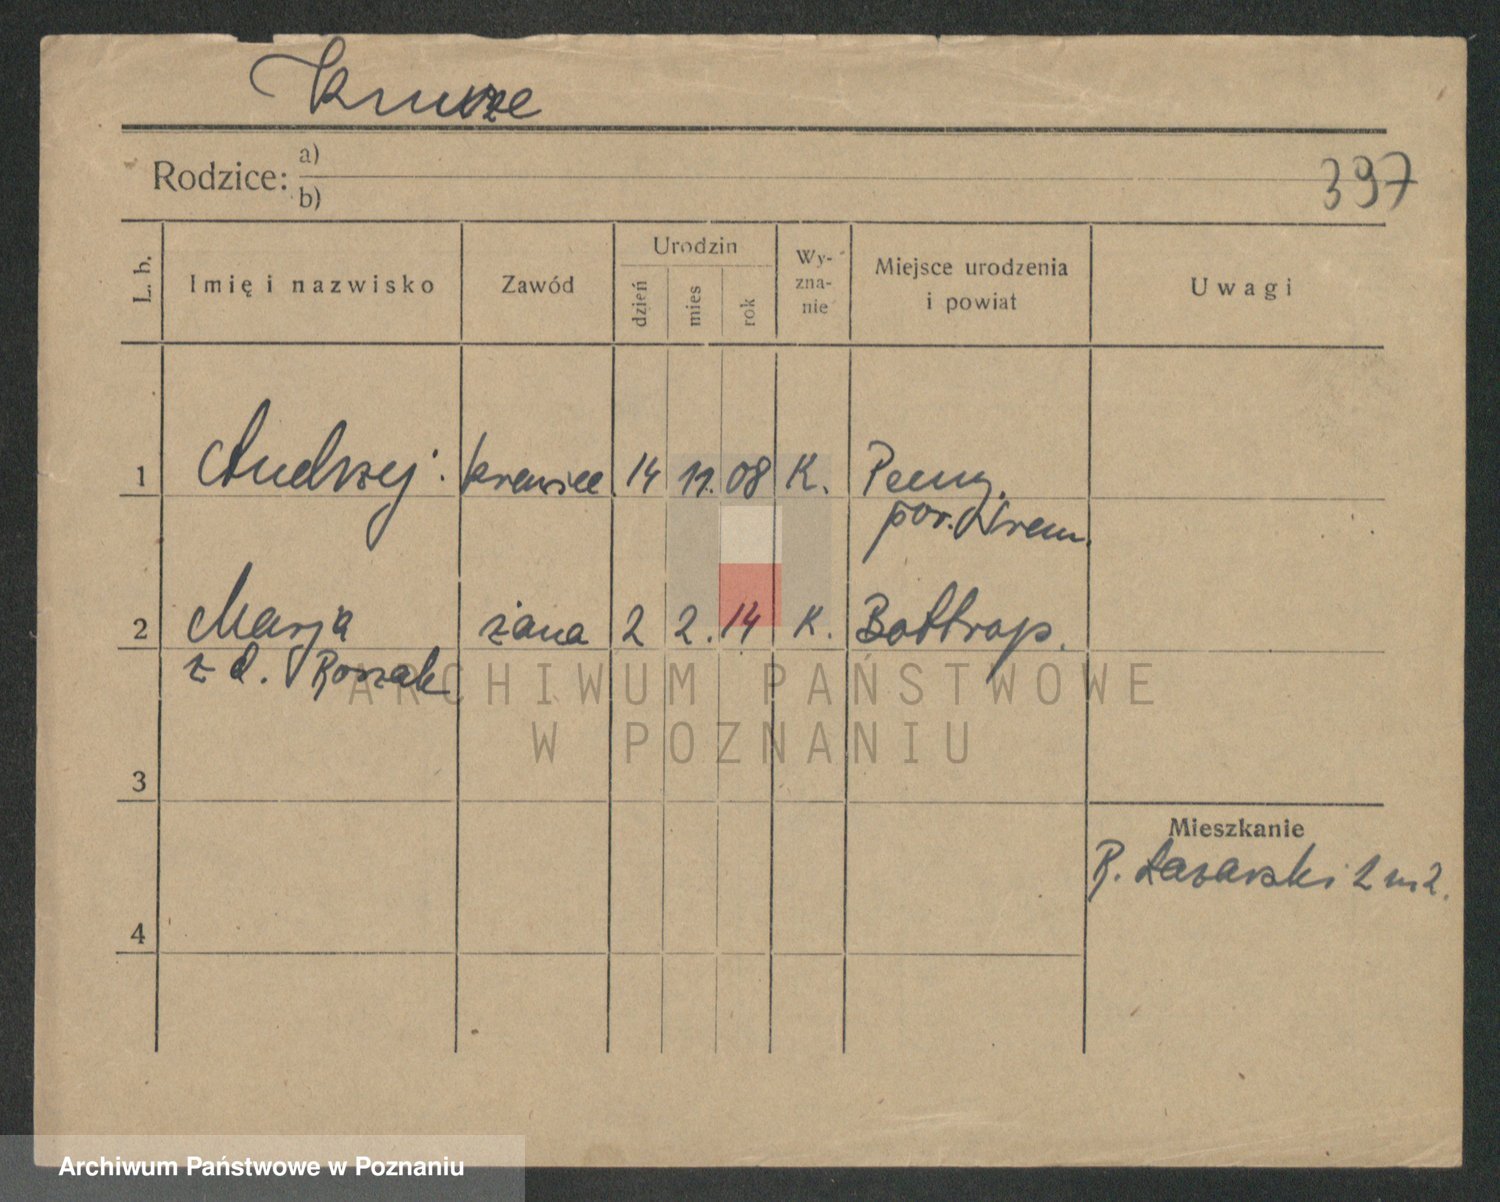 Rodzice:
a)
b)
397
L. b.
Imię i nazwisko
Zawód
Urodzin
dzień
mies
rok
Wy-
zna-
nie
Miejsce urodzenia
i powiat
Uwagi
1
Andrzej
krawiec
14
11.
08
K.
pow. Śrem.
2
Marja
z d. Roszak
żona
2
2.
14
K.
Bottrop.
3
4
Mieszkanie
R. Łazarski 2 m 2.
ARCHIWUM PAŃSTWOWE
W POZNANIU
Archiwum Państwowe w Poznaniu